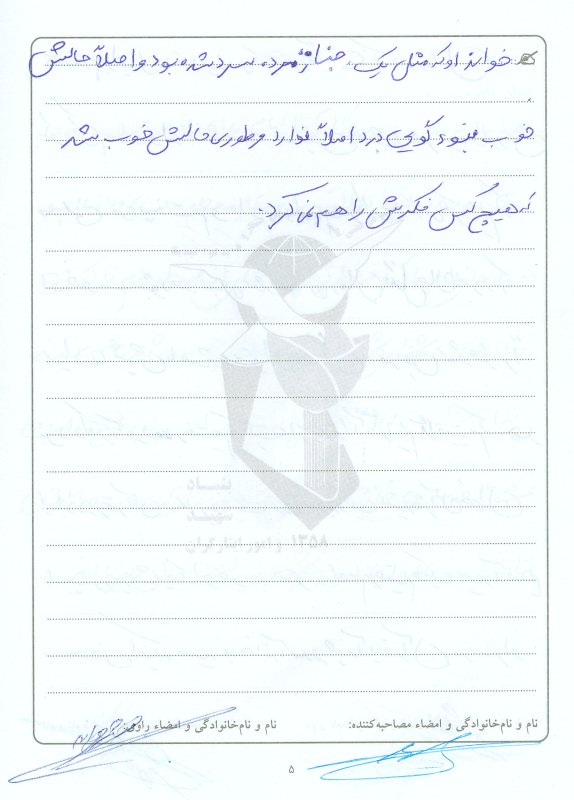 خواند او که مثل یک جنازه مرده سرد شده بود و اصلاً حالش
خوب نبود گویی درد اصلاً ندارد و طوری حالش خوب شد
که هیچ کس فکرش را هم نمی کرد.
بنیاد
شهید
و امور ایثارگران
۱۳۵۸
نام و نام‌خانوادگی و امضاء مصاحبه‌کننده:
نام و نام‌خانوادگی و امضاء راوی:
۵